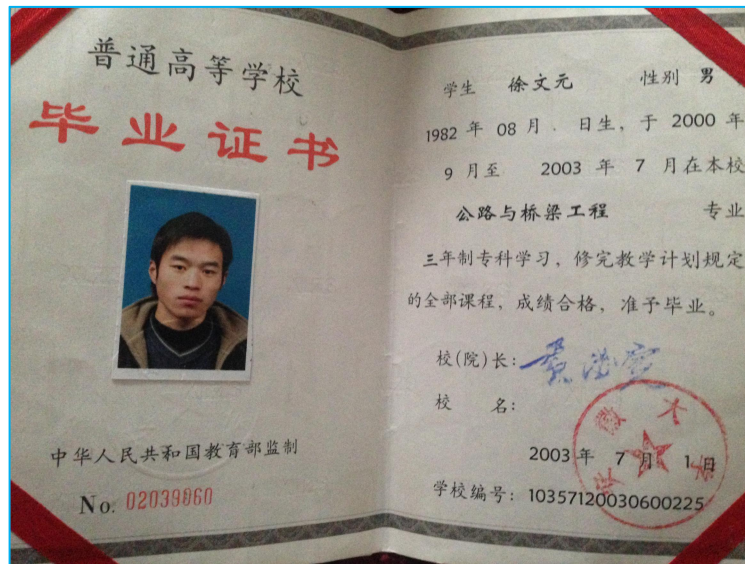 普通高等学校
毕业证书
中华人民共和国教育部监制
No. 02039860
学生 徐文元 性别 男
1982 年 08 月 . 日生, 于 2000 年
9 月至 2003 年 7 月在本校
公路与桥梁工程 专业
三年制专科学习, 修完教学计划规定
的全部课程, 成绩合格, 准予毕业。
校(院)长:
校 名:
安徽大学
2003 年 7 月 1 日
学校编号: 10357120030600225